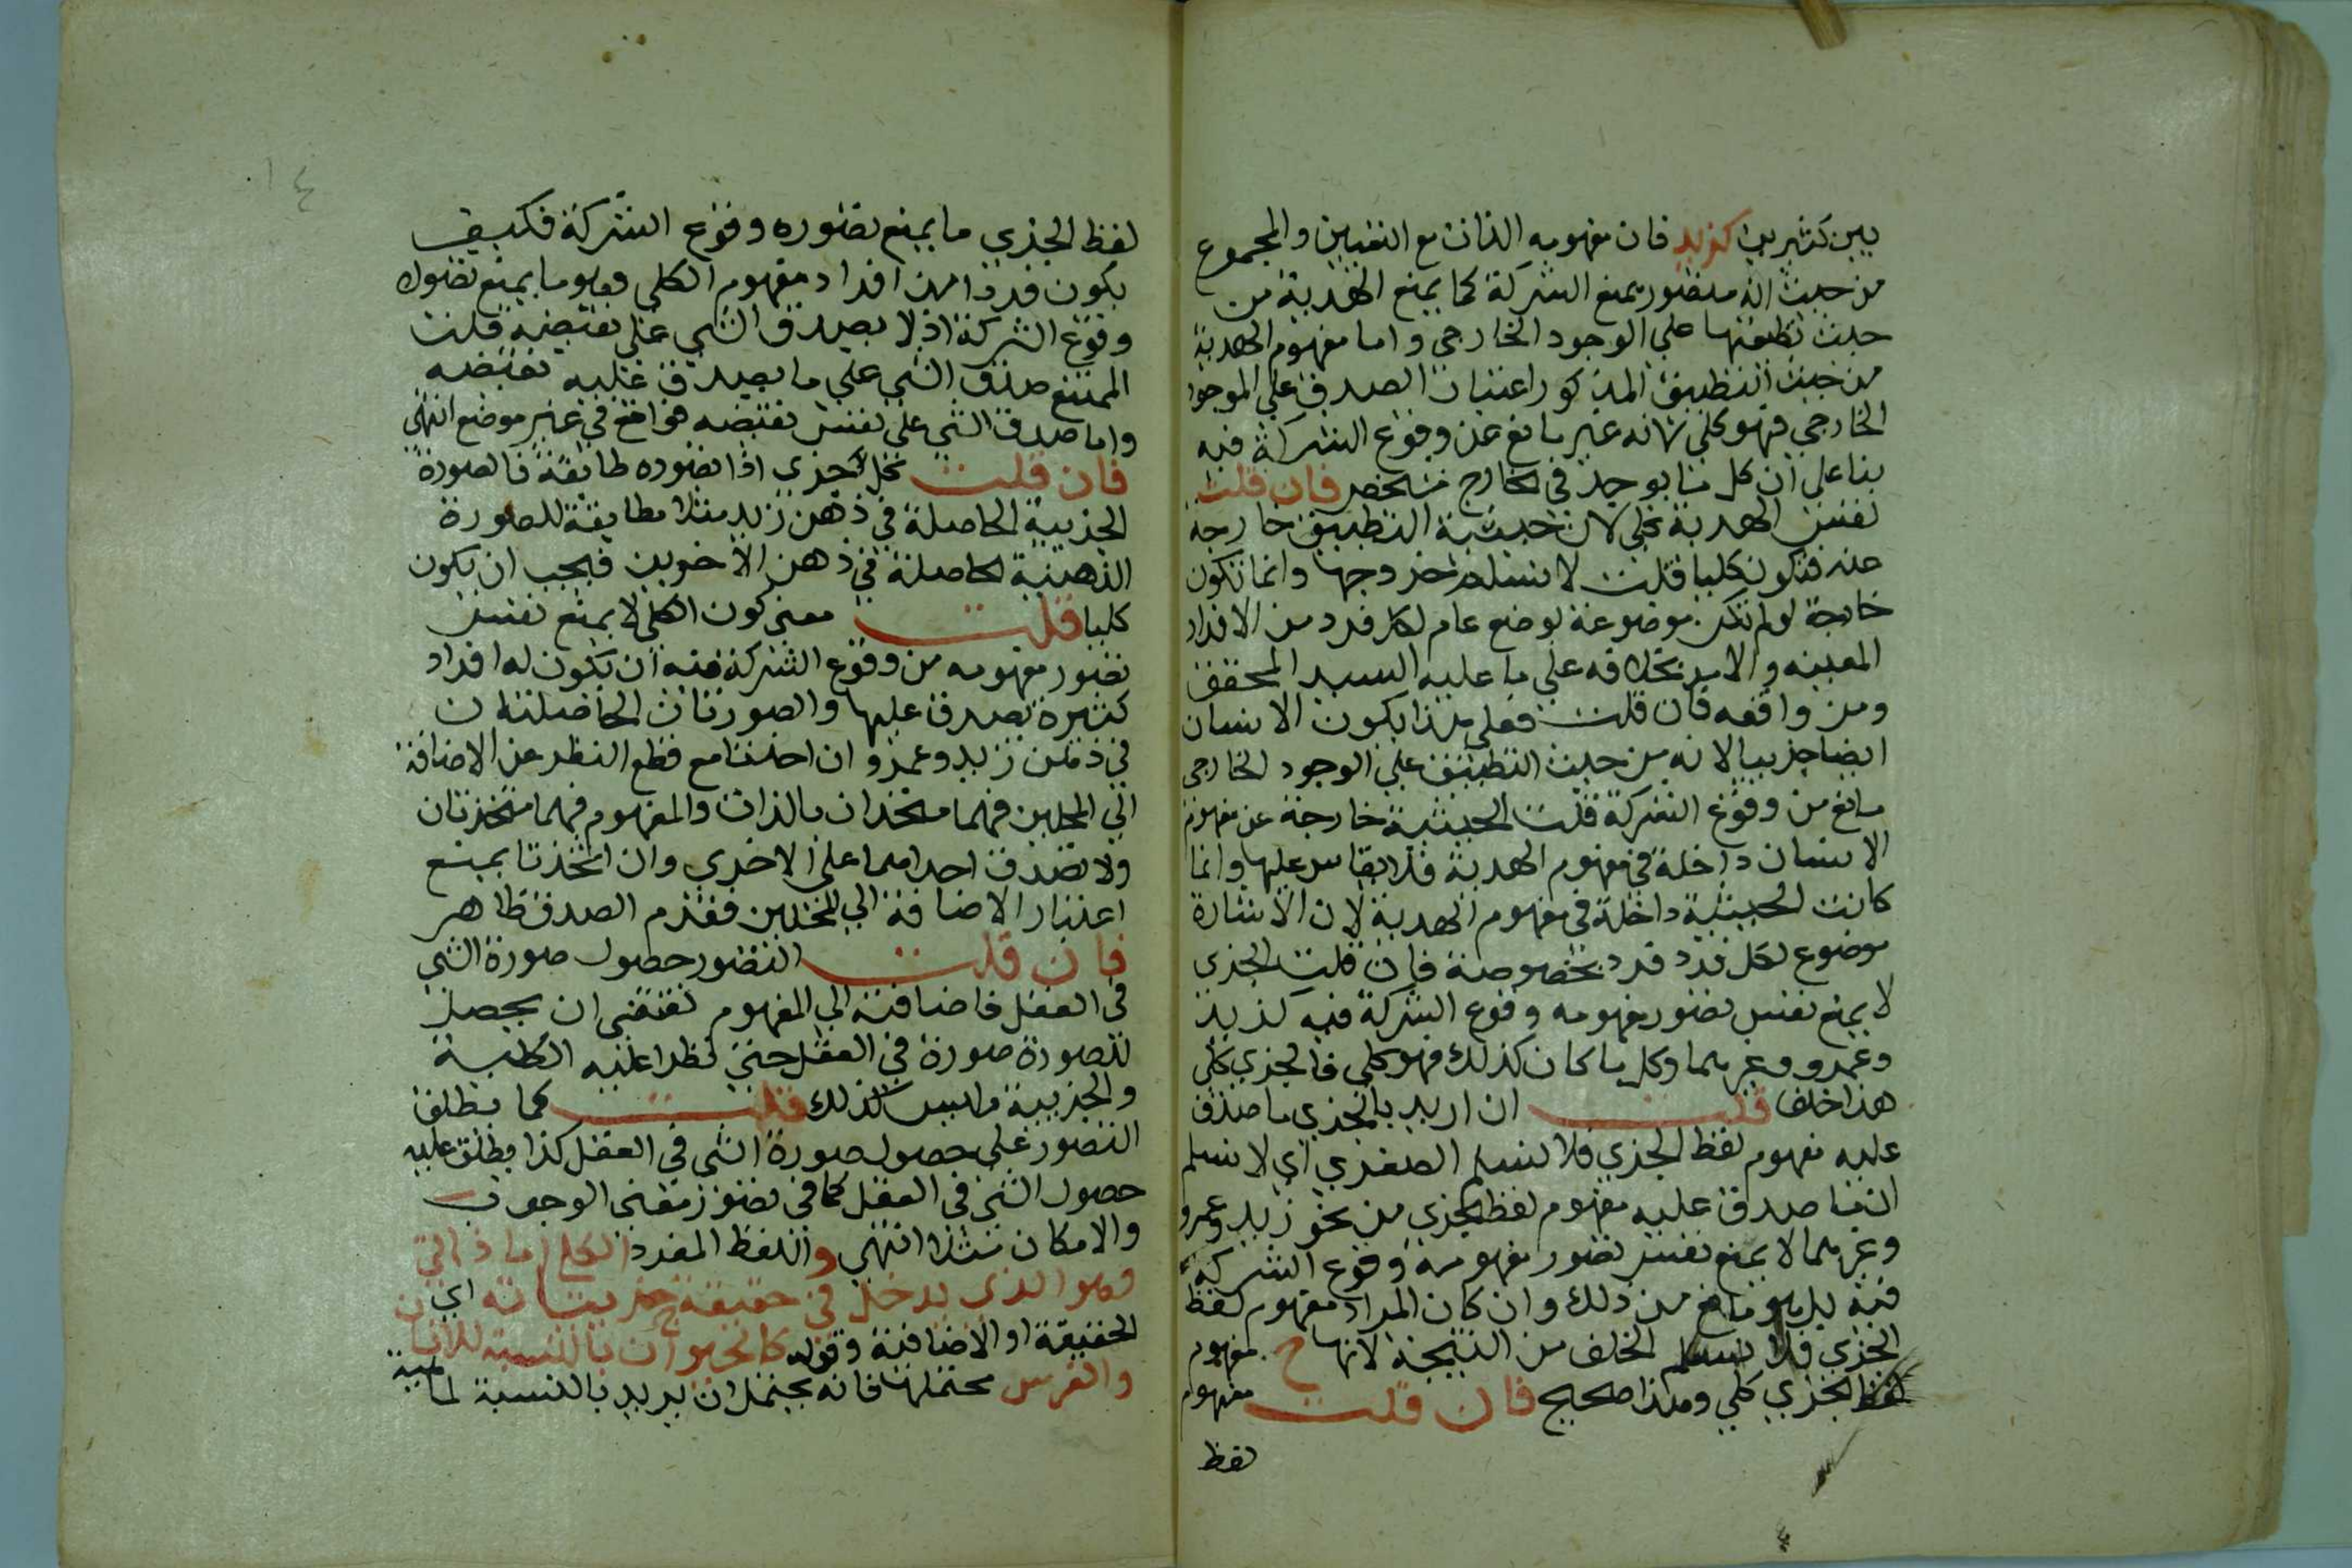 بين كثيرين كزيد فان مفهومه الذات مع التعيين والمجموع
من حيث انه متصور يمنع الشركة كما يمنع الهذية من
حيث تطبيقها على الوجود الخارجي واما مفهوم الهذية
من حيث التطبيق المذكور اعتبار الصدق على الموجود
الخارجي فهو كلي لانه غير مانع عن وقوع الشركة فيه
بنا على ان كل ما يوجد في الخارج مشخص فان قلت
نفس الهذية كلي لان حيثية التطبيق خارجة
عنه فتكون كليا قلت لا نسلم خروجها وانما تكون
خارجة لو لم تكن موضوعة بوضع عام لكل فرد من الافراد
المعينه والامر بخلافه على ما عليه السيد المحقق
ومن وافقه فان قلت فعلى هذا يكون الانسان
ايضا جزييا لانه من حيث التطبيق على الوجود الخارجي
مانع من وقوع الشركة قلت الحيثية خارجة عن مفهوم
الانسان داخلة في مفهوم الهذية فلا يقاس عليها وانما
كانت الحيثية داخلة في مفهوم الهذية لان الاشارة
موضوع لكل فرد فرد بخصوصه فان قلت الجزي
لا يمنع نفس تصور مفهومه وقوع الشركة فيه كزيد
وعمرو وغيرهما وكل ما كان كذلك فهو كلي فالجزي كلي
هذا خلف قلت ان اريد بالجزي ما صدق
عليه مفهوم لفظ الجزي فلا نسلم الصغري اي لا نسلم
ان ما صدق عليه مفهوم لفظ الجزي من نحو زيد وعمرو
وغيرهما لا يمنع نفس تصور مفهومه وقوع الشركة
فيه بل هو مانع من ذلك وان كان المراد مفهوم لفظ
الجزي فلا نسلم الخلف من النتيجة لانها ح مفهوم
لفظ الجزي كلي وهذا صحيح فان قلت مفهوم
لفظ
١٤
لفظ الجزي ما يمنع تصوره وقوع الشركة فكيف
يكون فردا من افراد مفهوم الكلي وهو ما يمنع تصوره
وقوع الشركة اذ لا يصدق الشي على نقيضه قلت
الممتنع صدق الشي على ما يصدق عليه نقيضه
واما صدق الشي على نفس نقيضه فواقع في غير موضع انتهى
فان قلت كل جزي اذا تصوره طايفة فالصورة
الجزيية الحاصلة في ذهن زيد مثلا مطابقة للصورة
الذهنية الحاصلة في ذهن الاخرين فيجب ان يكون
كليا قلت معنى كون الكلي لا يمنع نفس
تصور مفهومه من وقوع الشركة فيه ان يكون له افراد
كثيرة يصدق عليها والصورتان الحاصلتان
في ذهن زيد وعمرو ان اخذتا مع قطع النظر عن الاضافة
الي المحلين فهما متحدان بالذات والمفهوم فهما متحدتان
ولا تصدق احداهما على الاخري وان اتخذتا بمنع
اعتبار الاضافة الي المحلين فعدم الصدق ظاهر
فان قلت التصور حصول صورة الشي
في العقل فاضافته الي المفهوم تقتضي ان يحصل
للصورة صورة في العقل حتى تطرا عليه الكلية
والجزيية وليس كذلك قلت كما يطلق
التصور على حصول صورة الشي في العقل كذا يطلق عليه
حصول الشي في العقل كما في تصور معنى الوجوب
والامكان مثلا انتهى واللفظ المفرد الكلي اما ذاتي
وهو الذي يدخل في حقيقة جزيياته اي
الحقيقة او الاضافية وقوله كالحيوان بالنسبة للانسان
والفرس محتملها فانه يحتمل ان يريد بالنسبة لماهية